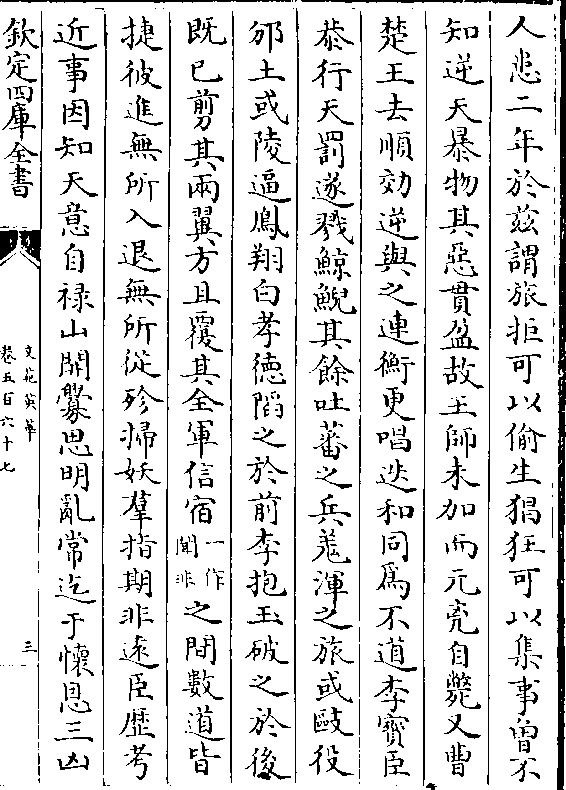 人患二年於兹謂旅拒可以偷生猖狂可以集事曽不
知逆天暴物其惡貫盈故王師未加而元兇自斃又曹
楚王去順効逆與之連衡更唱迭和同為不道李寳臣
恭行天罰遂戮鯨鯢其餘吐蕃之兵羌渾之旅或毆役
邠土或陵逼鳯翔白孝德蹈之於前李抱玉破之於後
既已剪其兩翼方且覆其全軍信宿一作聞非之間數道皆
捷彼進無所入退無所從殄掃妖羣指期非遠臣歴考
近事因知天意自禄山開釁思明亂常迄于懷恩三凶
欽定四庫全書
文苑英華
卷五百六十七
三